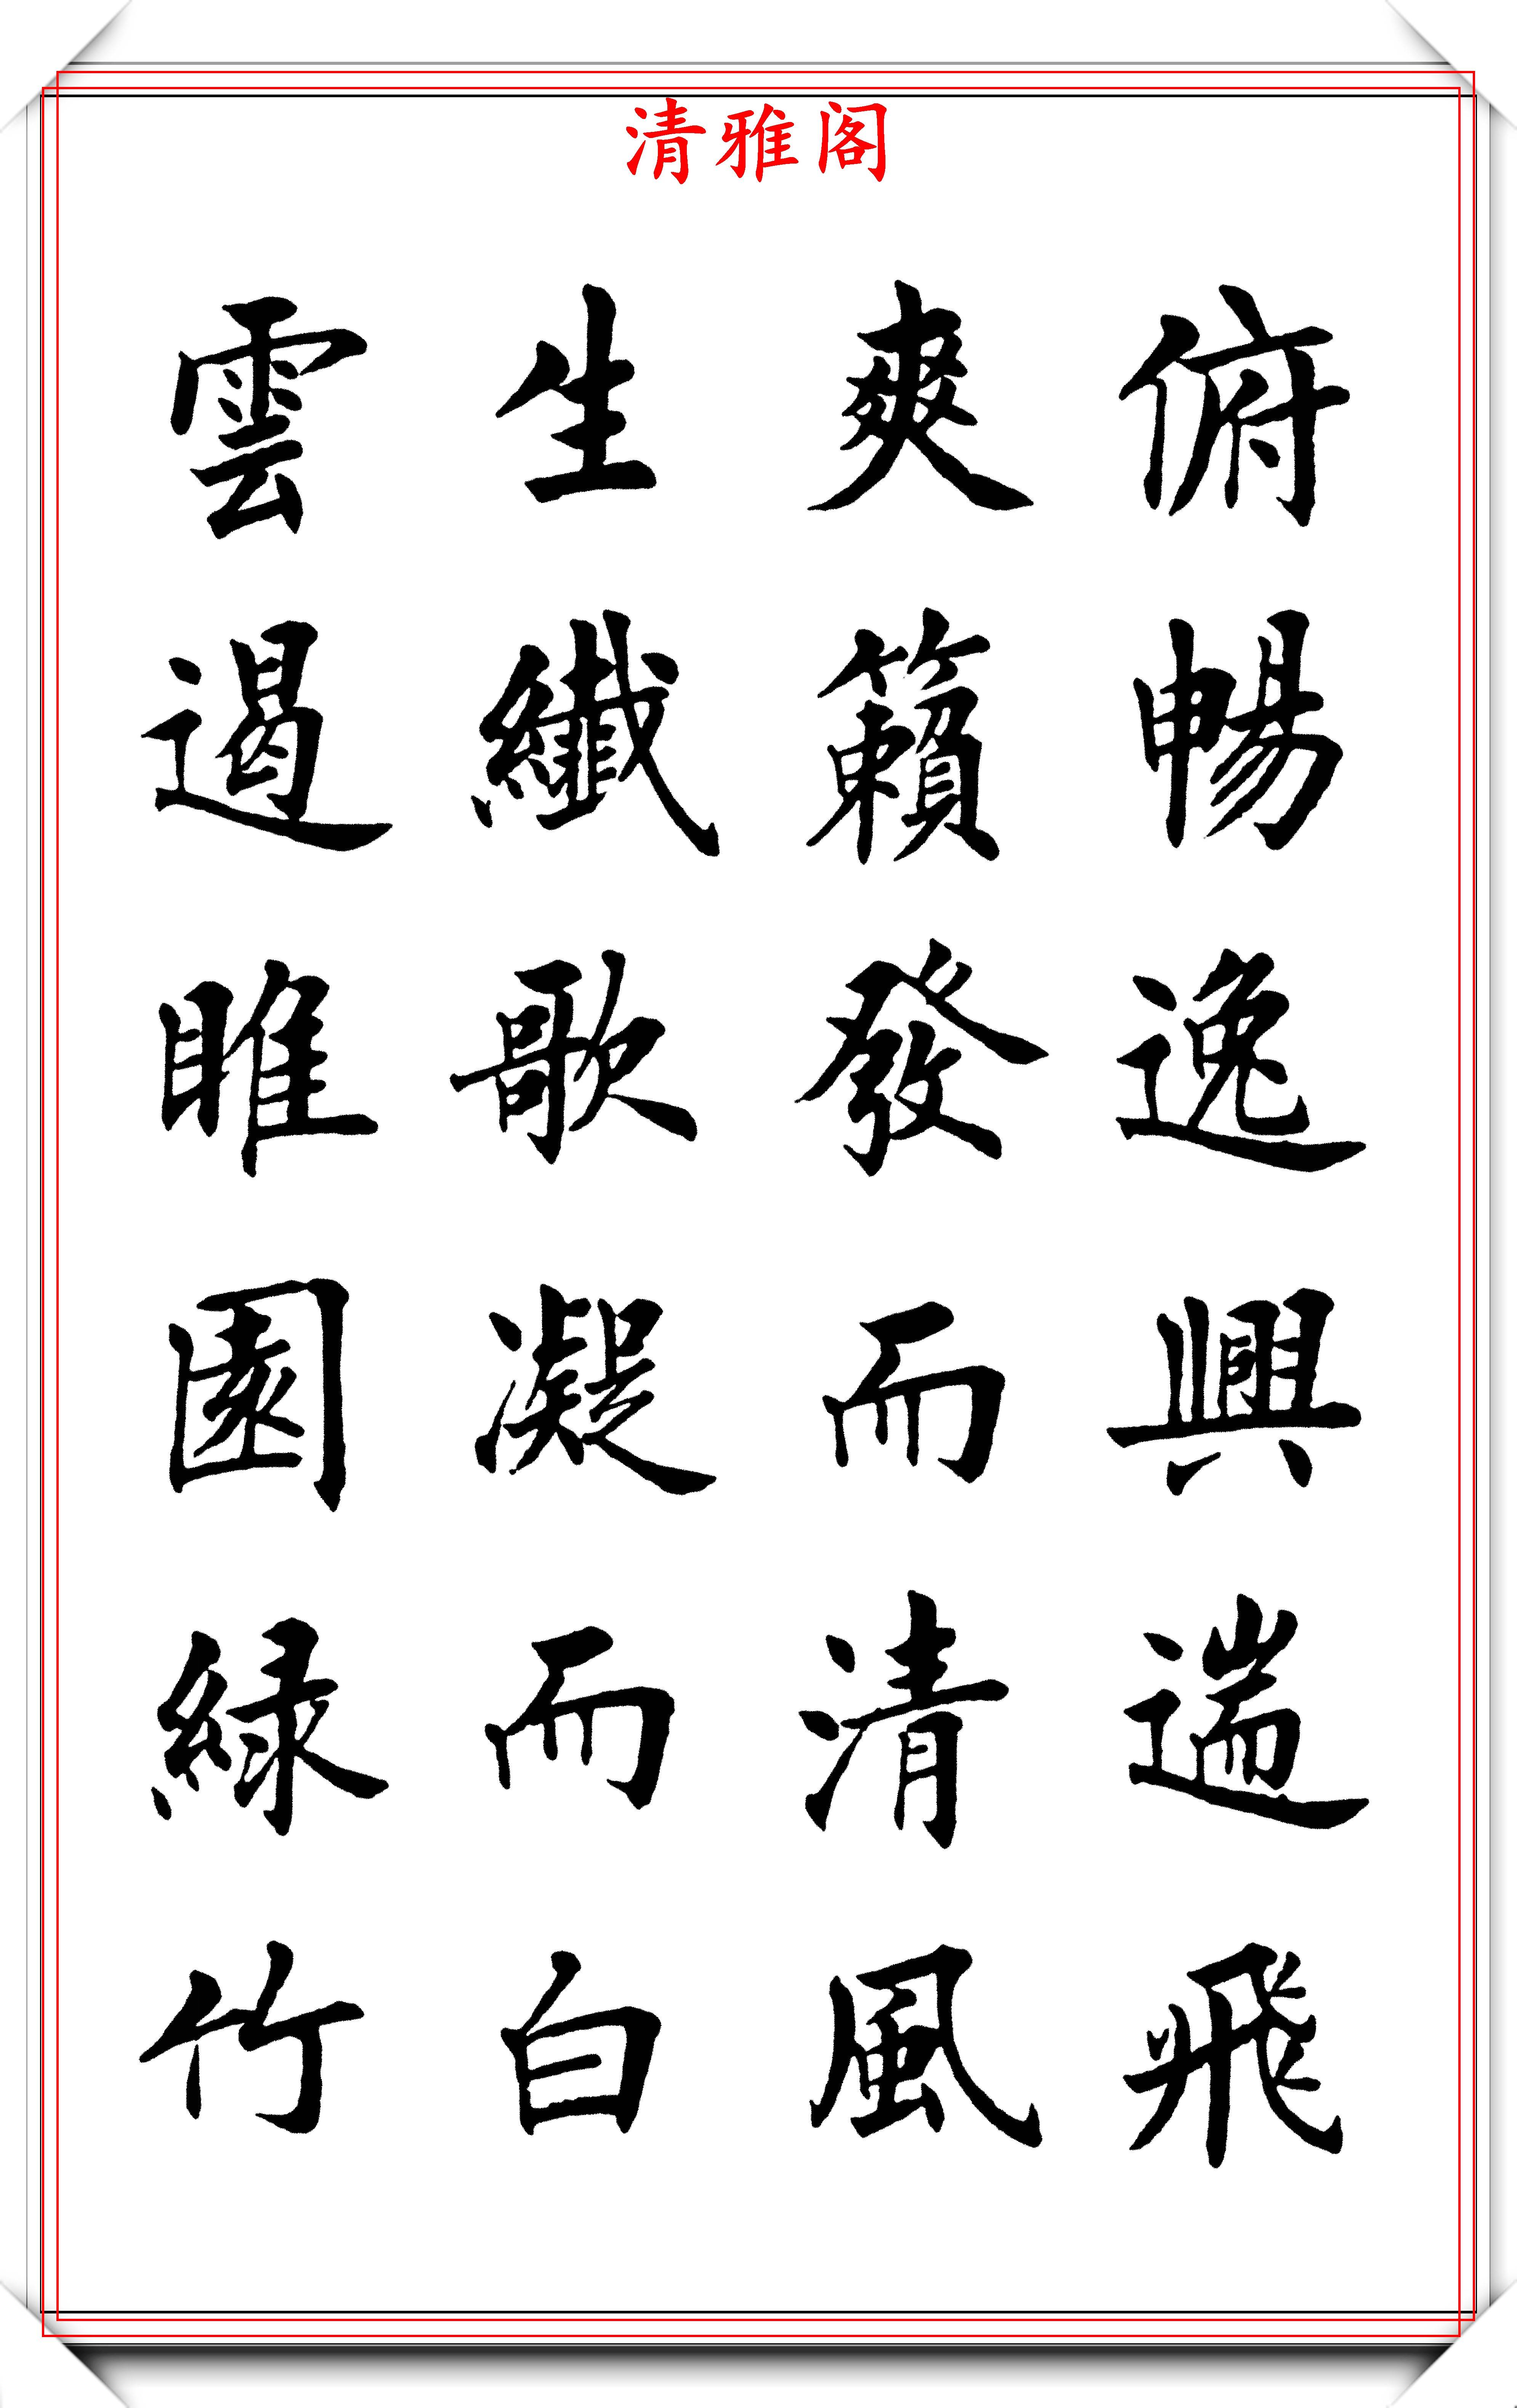 清雅阁
俯暢逸興遄飛
爽籟發而清風
生纖歌凝而白
雲遏睢園緑竹